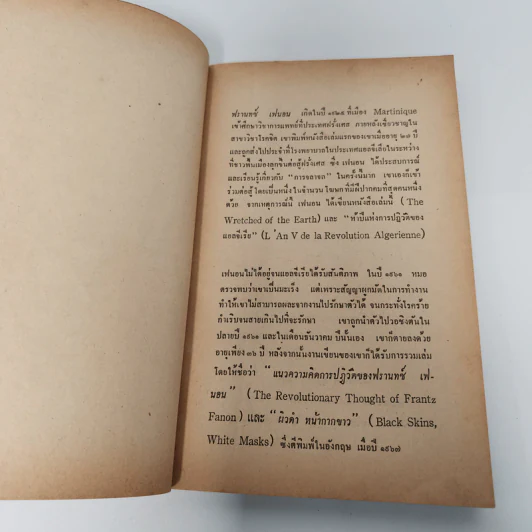 ฟรานทซ์ เฟนอน เกิดในปี ๑๙๒๕ ที่เมือง Martinique
เข้าศึกษาวิชาการแพทย์ที่ประเทศฝรั่งเศส ภายหลังเชี่ยวชาญใน
สาขาวิชาโรคจิต เขาพิมพ์หนังสือเล่มแรกของเขาเมื่ออายุ ๒๗ ปี
และถูกส่งไปประจำที่โรงพยาบาลในประเทศแอลจีเรียในระหว่าง
ที่ชาวพื้นเมืองลุกขึ้นต่อสู้ฝรั่งเศส ซึ่ง เฟนอน ได้ประสบการณ์
และเรียนรู้เกี่ยวกับ "การจลาจล" ในครั้งนี้มาก เขาเองก็เข้า
ร่วมต่อสู้ โดยเป็นหนึ่งในจำนวน โฆษกที่มีฝีปากคมที่สุดคนหนึ่ง
ด้วย จากเหตุการณ์นี้ เฟนอน ได้เขียนหนังสือเล่มนี้ (The
Wretched of the Earth) และ "ห้าปีแห่งการปฏิวัติของ
แอลจีเรีย" (L 'An V de la Revolution Algerienne)
เฟนอนไม่ได้อยู่จนแอลจีเรียได้รับสันติภาพ ในปี ๑๙๖๑ หมอ
ตรวจพบว่าเขาเป็นมะเร็ง แต่เพราะสัญญาผูกมัดในการทำงาน
ทำให้เขาไม่สามารถผละจากงานไปรักษาตัวได้ จนกระทั่งโรคร้าย
กำเริบจนสายเกินไปที่จะรักษา เขาถูกนำตัวไปวอชิงตันใน
ปลายปี ๑๙๖๑ และในเดือนธันวาคม ปีนั้นเอง เขาก็ตายลงด้วย
อายุเพียง ๓๖ ปี หลังจากนั้นงานเขียนของเขาก็ได้รับการรวมเล่ม
โดยให้ชื่อว่า "แนวความคิดการปฏิวัติของฟรานทซ์ เฟ-
นอน" (The Revolutionary Thought of Frantz
Fanon) และ "ผิวดำ หน้ากากขาว" (Black Skins,
White Masks) ซึ่งตีพิมพ์ในอังกฤษ เมื่อปี ๑๙๖๗